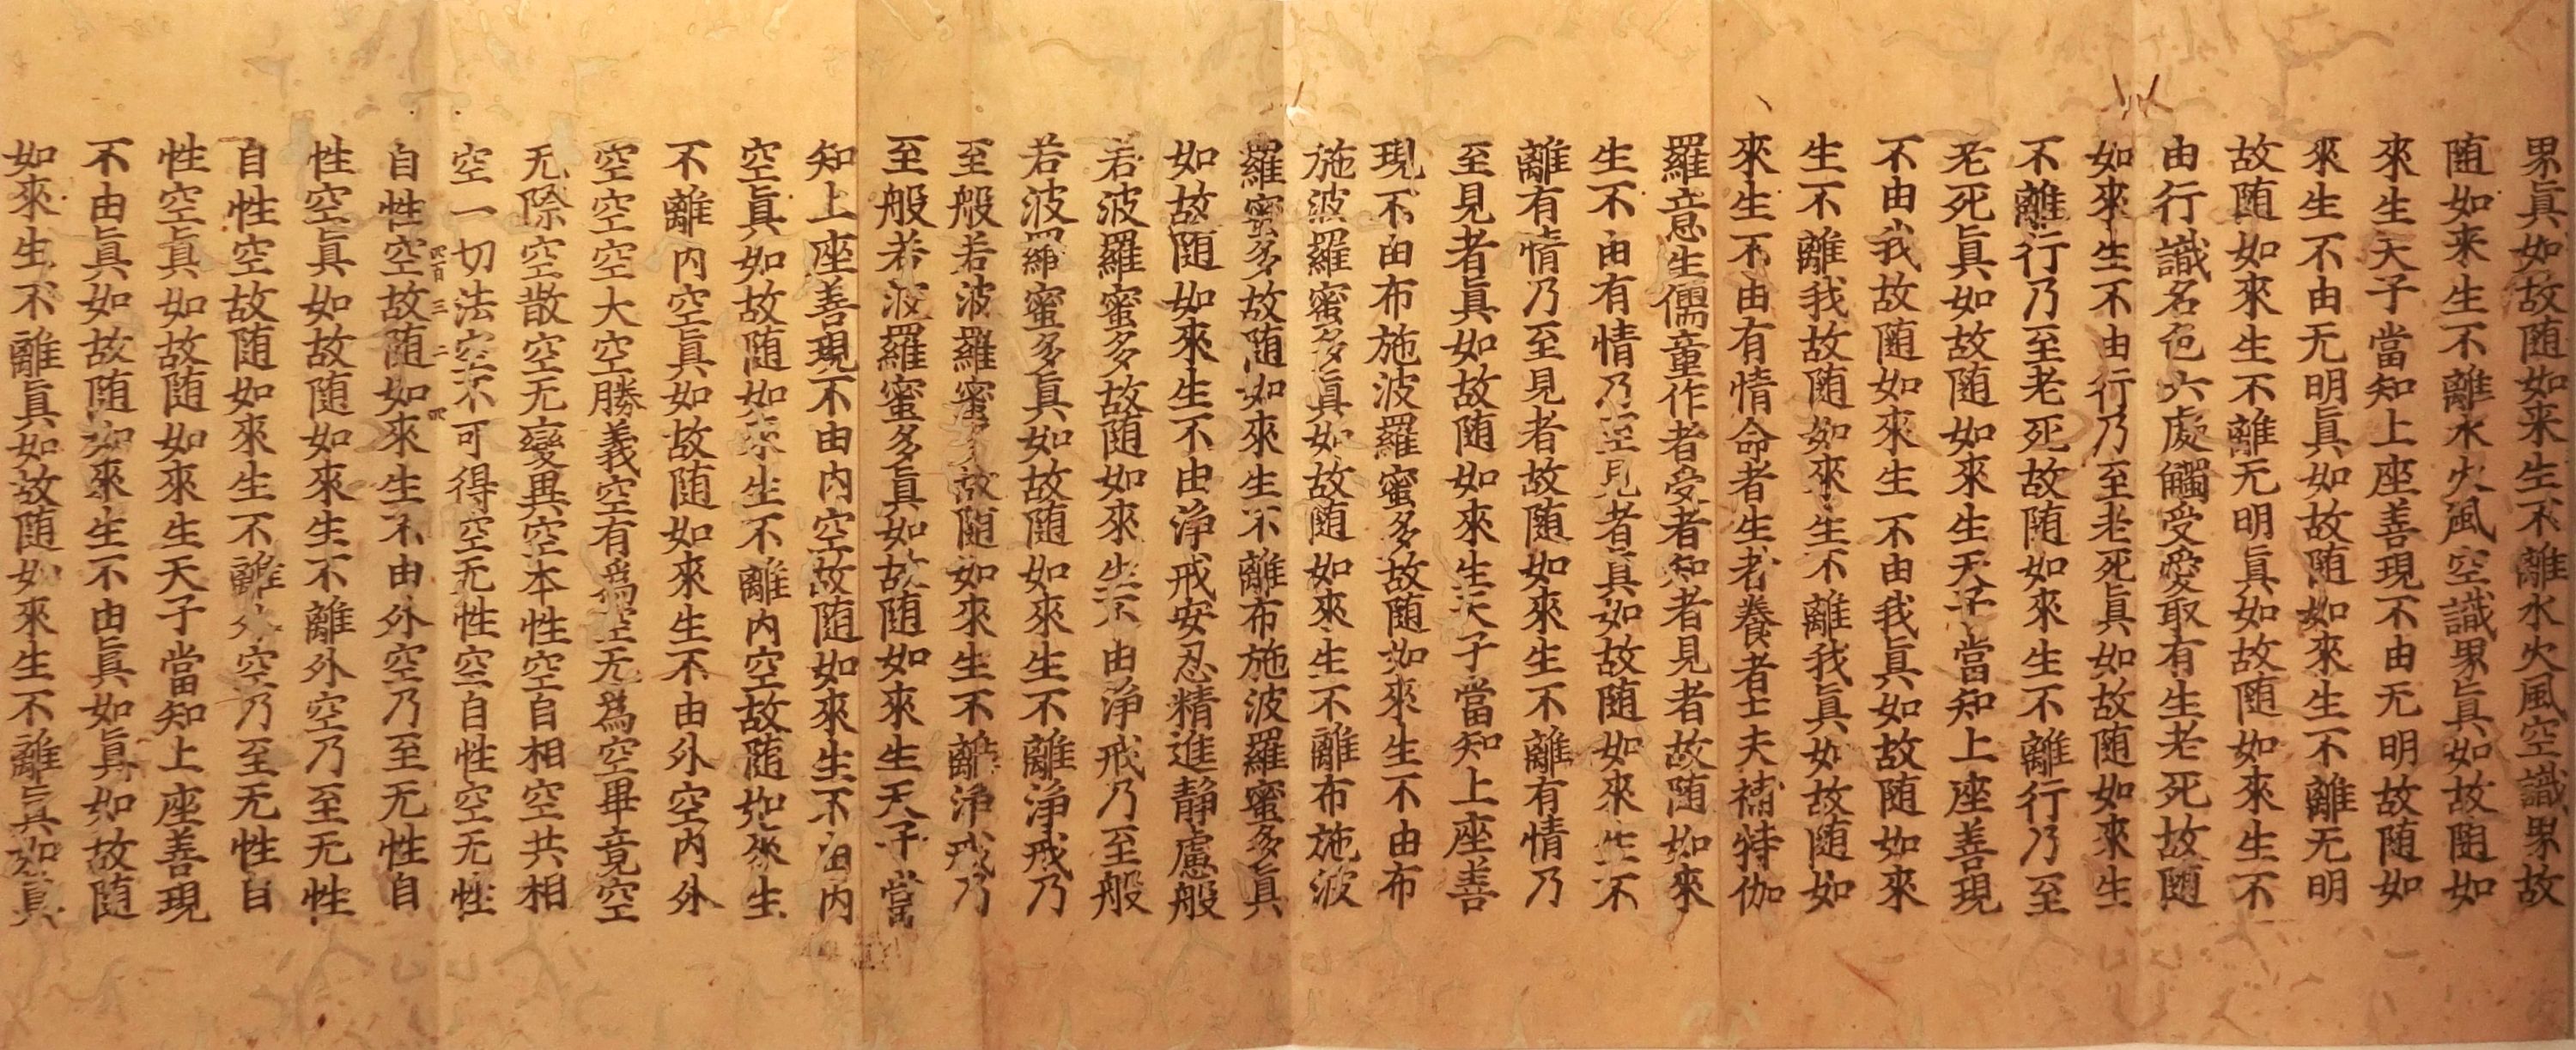 界眞如故随如来生不離水火風空識界故
随如来生不離水火風空識界眞如故随如
來生天子當知上座善現不由无明故随如
來生不由无明眞如故随如來生不離无明
故随如來生不離无明眞如故随如來生不
由行識名色六處觸受愛取有生老死故随
如來生不由行乃至老死眞如故随如來生
不離行乃至老死故随如來生不離行乃至
老死眞如故随如來生天子當知上座善現
不由我故随如來生不由我眞如故随如來
生不離我故随如來生不離我眞如故随如
來生不由有情命者生者養者士夫補特伽
羅意生儒童作者受者知者見者故随如來
生不由有情乃至見者眞如故随如來生不
離有情乃至見者故随如來生不離有情乃
至見者眞如故随如來生天子當知上座善
現不由布施波羅蜜多故随如來生不由布
施波羅蜜多眞如故随如來生不離布施波
羅蜜多故随如來生不離布施波羅蜜多眞
如故随如來生不由淨戒安忍精進静慮般
若波羅蜜多故随如來生不由淨戒乃至般
若波羅蜜多眞如故随如來生不離淨戒乃
至般若波羅蜜多故随如來生不離淨戒乃
至般若波羅蜜多眞如故随如來生天子當
知上座善現不由内空故随如來生不由内
空眞如故随如來生不離内空故随如來生
不離内空眞如故随如來生不由外空内外
空空空大空勝義空有爲空无爲空畢竟空
无際空散空无變異空本性空自相空共相
空一切法空不可得空无性空自性空无性
自性空故随如來生不由外空乃至无性自
性空眞如故随如來生不離外空乃至无性
自性空故随如來生不離外空乃至无性自
性空眞如故随如來生天子當知上座善現
不由眞如故随如來生不由眞如眞如故随
如來生不離眞如故随如來生不離眞如眞